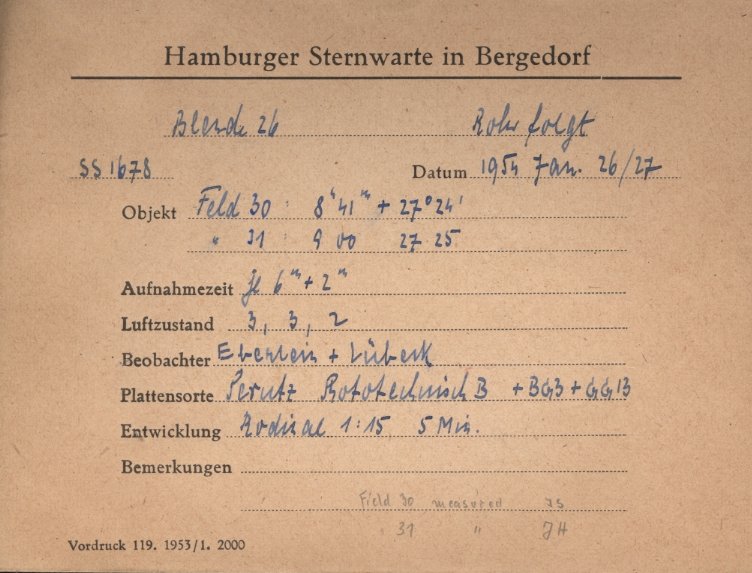 Hamburger Sternwarte in Bergedorf
Blende 26 Rohr folgt
SS 1678 Datum 1954 Jan. 26/27
Objekt Feld 30 : 8ʰ41ᵐ + 27°24'
" 31 : 9 00 27 25
Aufnahmezeit Je 6ᵐ + 2ᵐ
Luftzustand 3, 3, 2
Beobachter Eberlein + Lübeck
Plattensorte Perutz Phototechnisch B + BG3 + GG13
Entwicklung Rodinal 1:15 5 Min.
Bemerkungen
Field 30 measured JS
31 " JH
Vordruck 119. 1953/1. 2000